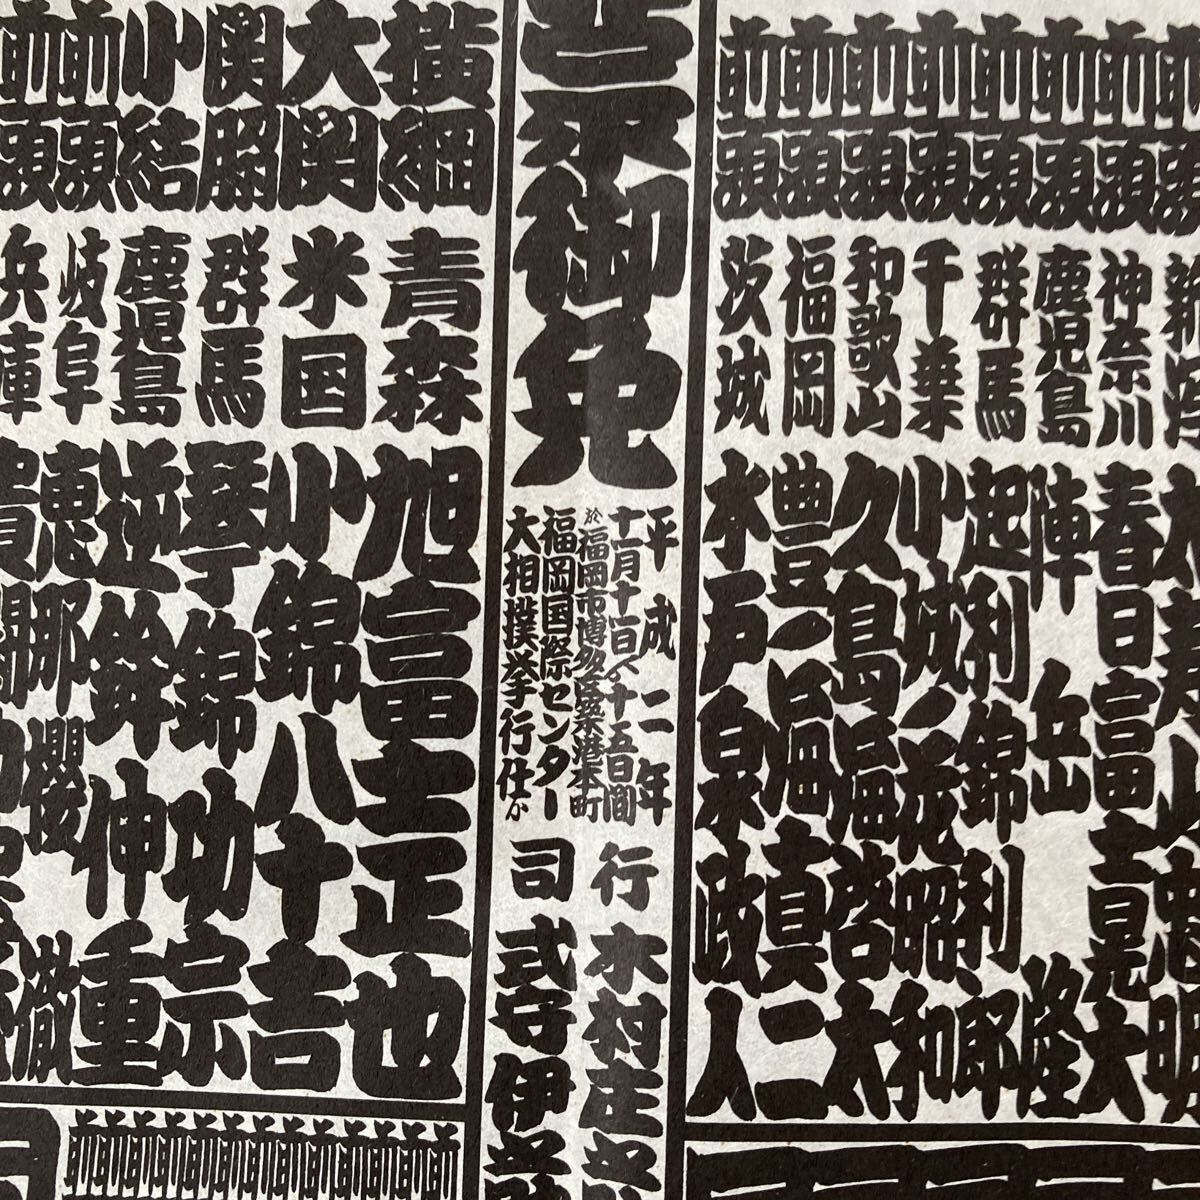 前頭 神奈川 春日富士晃大
前頭 鹿児島 陣岳隆
前頭 群馬 起利錦利郎
前頭 千葉 小城ノ花昭和
前頭 和歌山 久島海啓太
前頭 福岡 豊ノ海真二
前頭 茨城 水戸泉政人
蒙御免
平成二年
十一月十一日ゟ十五日間
於福岡市博多区築港本町
福岡国際センター
大相撲挙行仕候
行司
木村庄之
式守伊之
横綱 青森 旭富士正也
大関 米国 小錦八十吉
関脇 群馬 琴錦功宗
小結 鹿児島 逆鉾伸重
前頭 岐阜 恵那櫻徹
前頭 兵庫